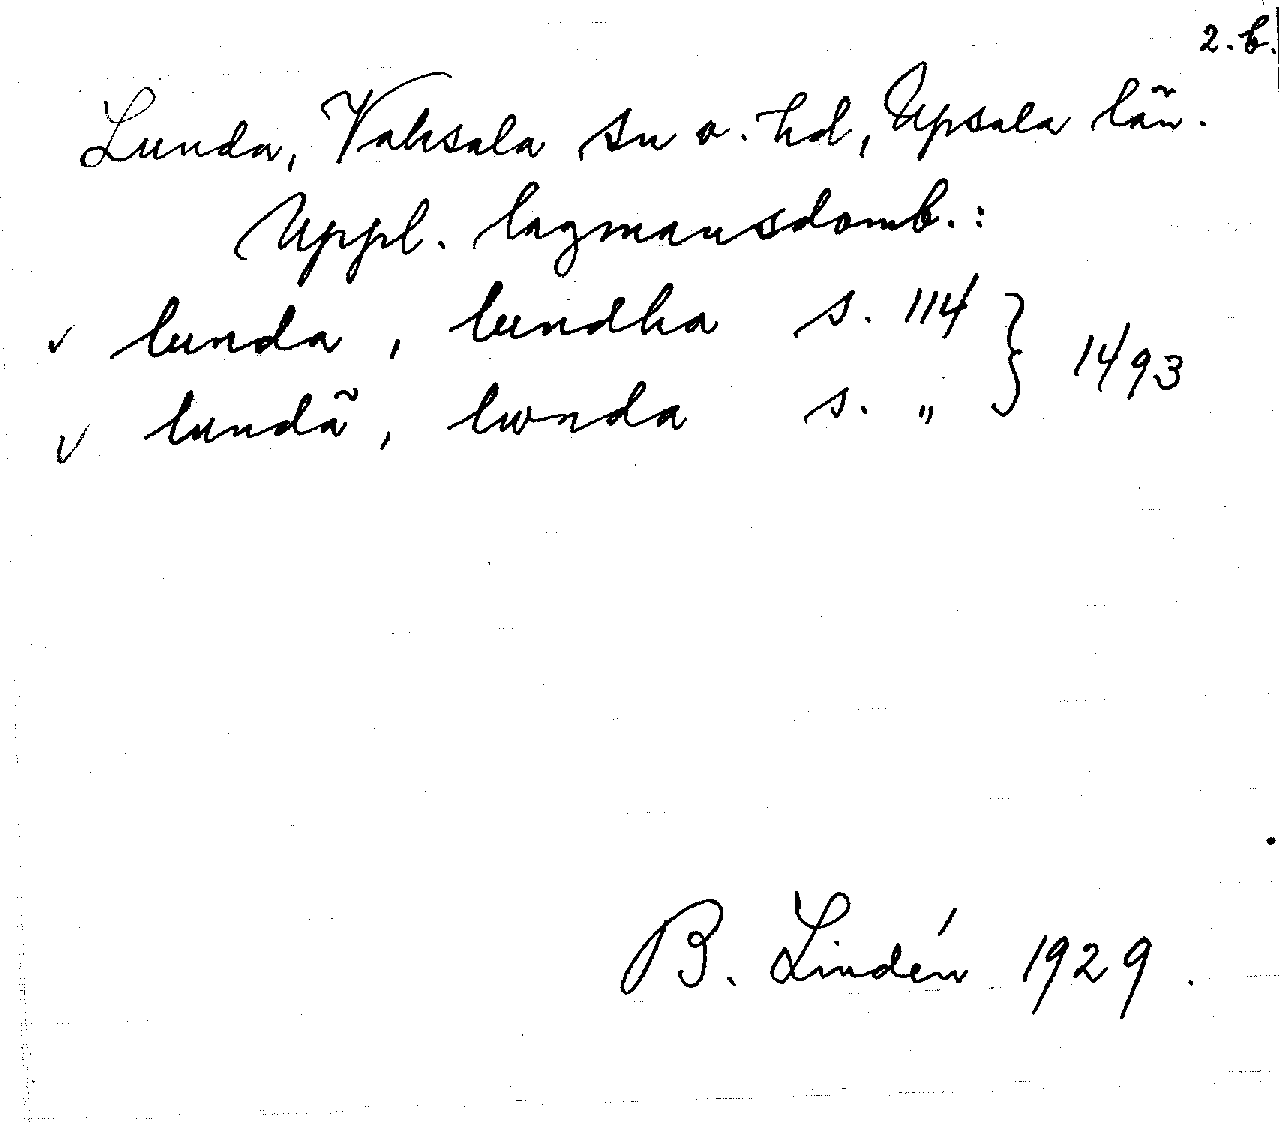 2. b.
Lunda, Vaksala sn o. hd, Upsala län.
Uppl. lagmansdomb.:
✓ lunda, lundha s. 114 } 1493
✓ lundã, lwnda s. „
B. Lindén 1929.